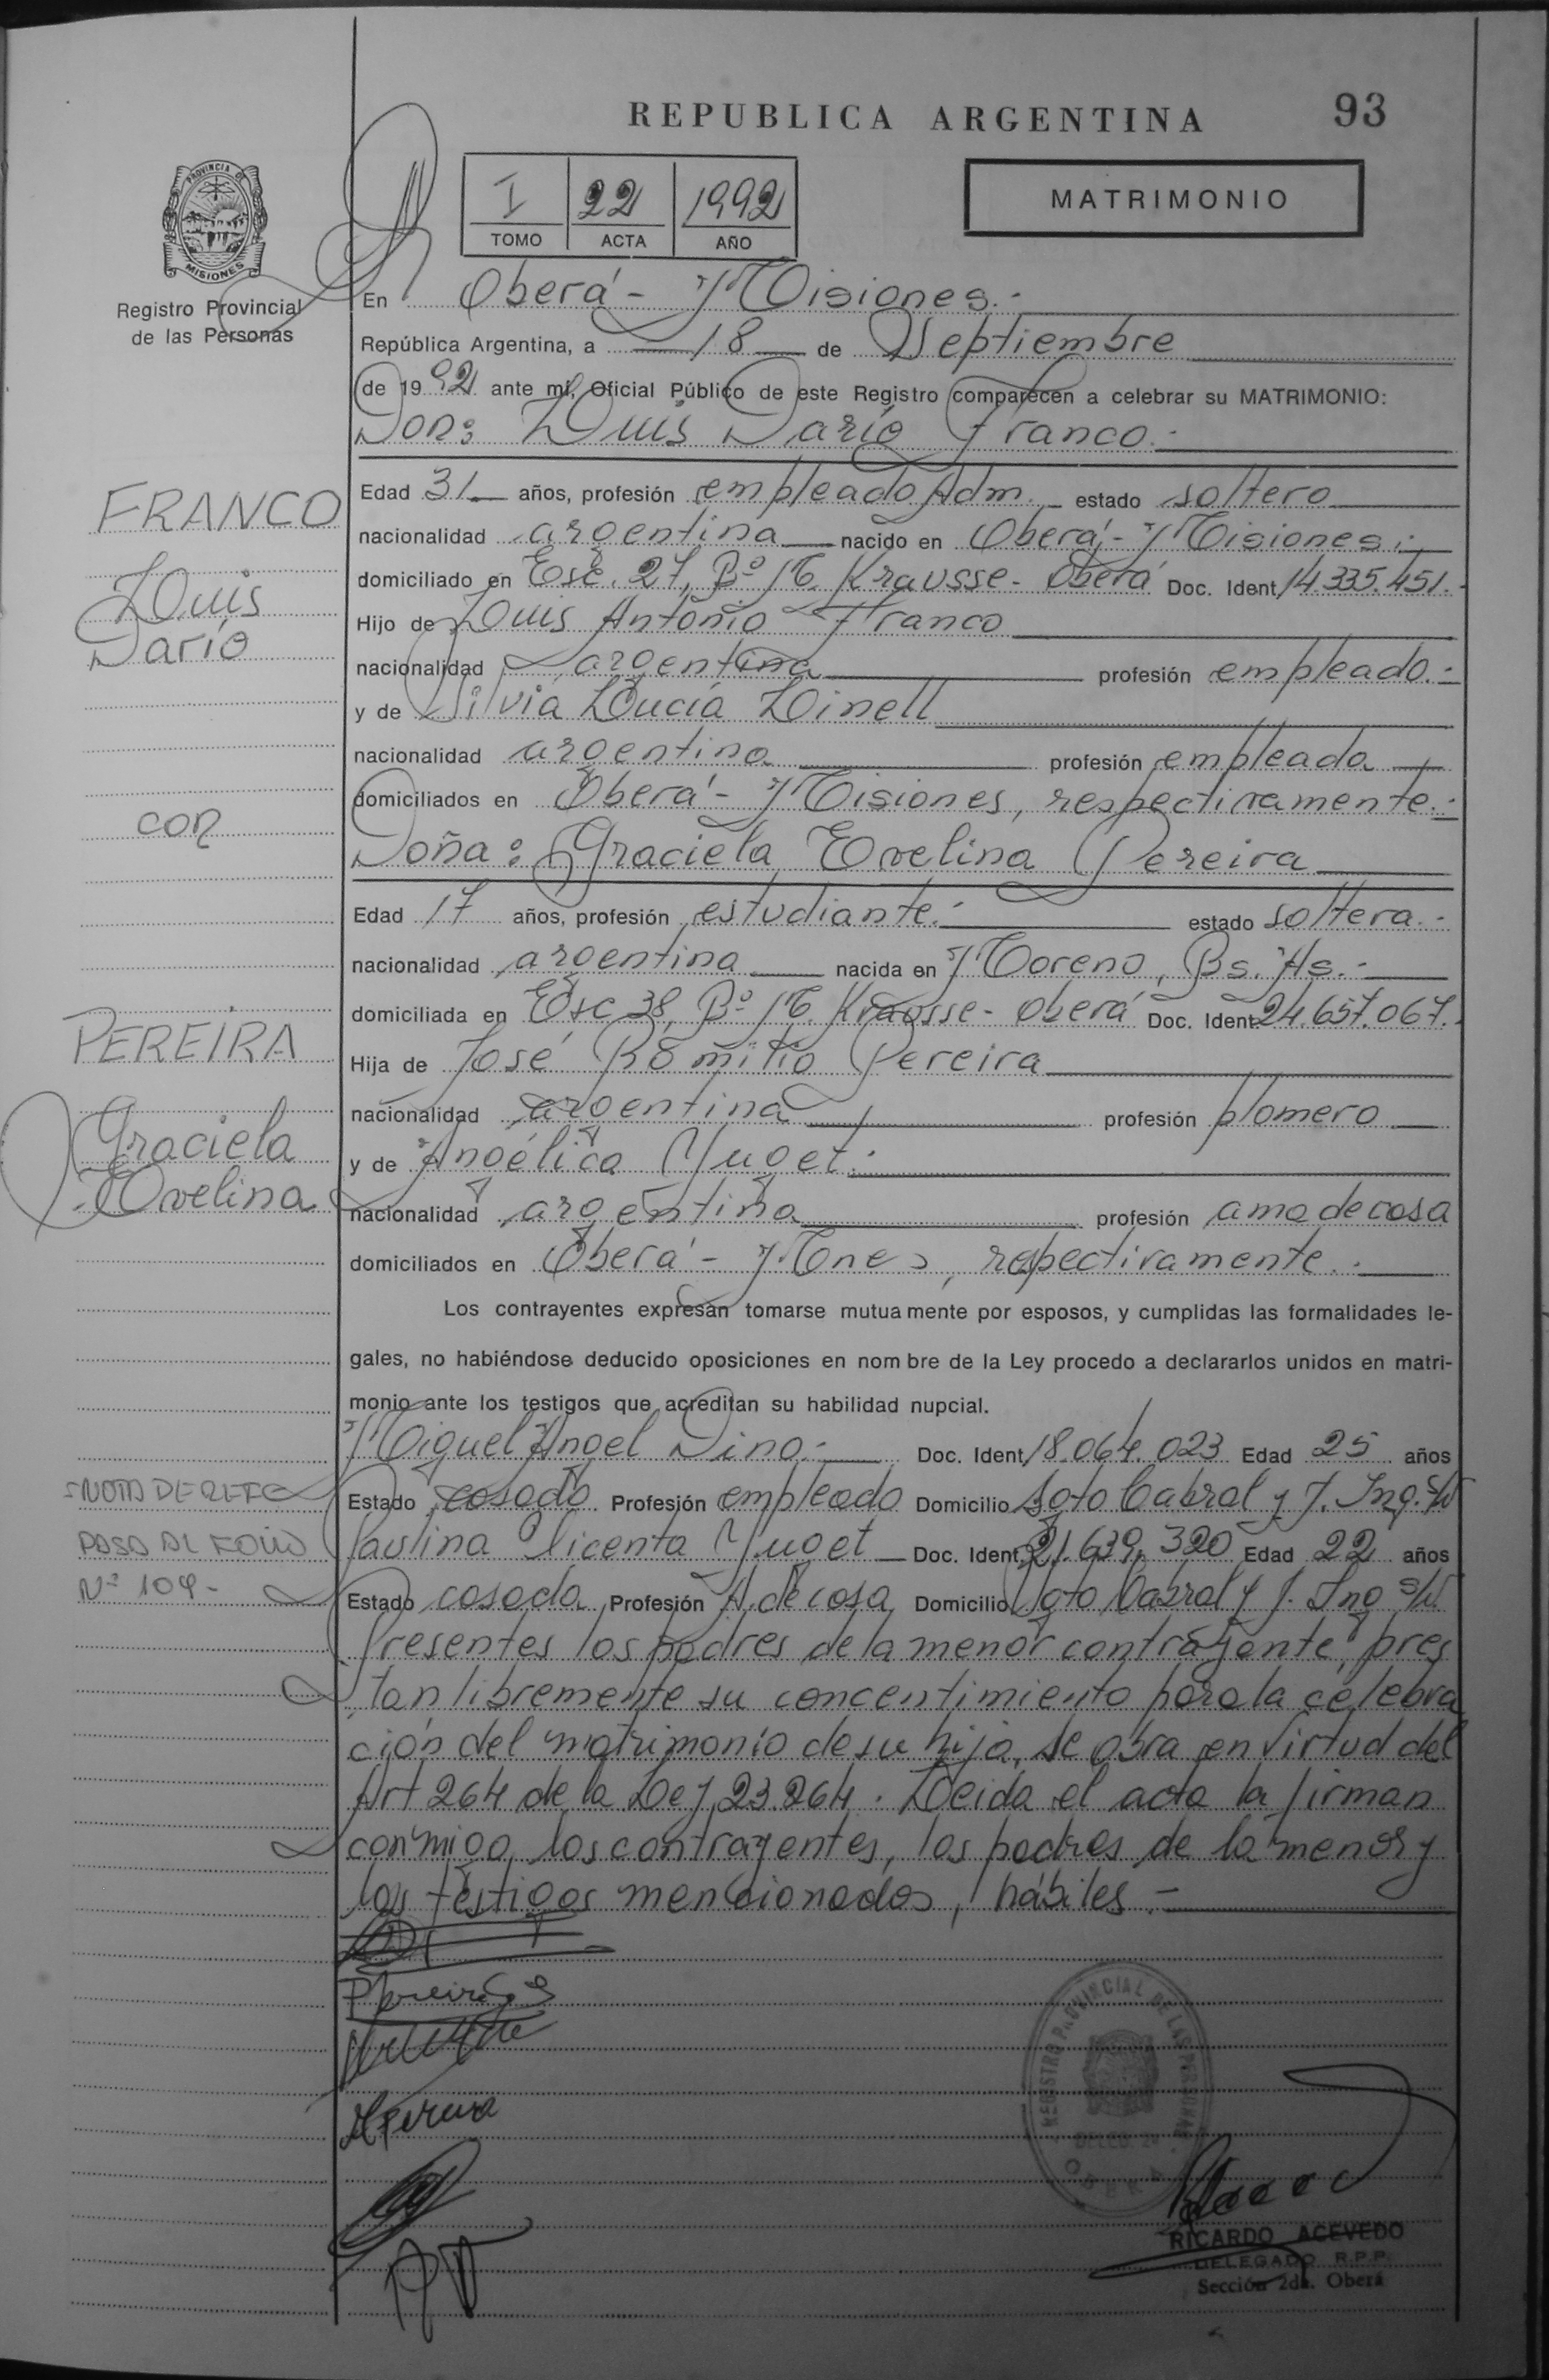 REPUBLICA ARGENTINA
93
PROVINCIA DE
MISIONES
Registro Provincial
de las Personas
I 22 1992
TOMO ACTA AÑO
MATRIMONIO
En Oberá - Misiones.-
República Argentina, a 18 de Septiembre
de 1992 ante mí, Oficial Público de este Registro comparecen a celebrar su MATRIMONIO:
Don: Luis Darío Franco.-
FRANCO
Luis
Darío
con
PEREIRA
Graciela
Evelina
Edad 31 años, profesión empleado Adm. estado soltero
nacionalidad argentina nacido en Oberá - Misiones.-
domiciliado en Esc. 27, Bº M. Krausse - Oberá Doc. Ident 14.335.451.-
Hijo de Luis Antonio Franco
nacionalidad argentina profesión empleado.-
y de Silvia Lucía Linell
nacionalidad argentina profesión empleada
domiciliados en Oberá - Misiones, respectivamente.-
Doña: Graciela Evelina Pereira
Edad 17 años, profesión estudiante.- estado soltera.-
nacionalidad argentina nacida en Moreno, Bs. As.-
domiciliada en Esc 38, Bº M. Krausse - Oberá Doc. Ident 24.657.067.-
Hija de José Romilio Pereira
nacionalidad argentina profesión plomero
y de Angélica Yuget.-
nacionalidad argentina profesión ama de casa
domiciliados en Oberá - Mones, respectivamente.-
Los contrayentes expresan tomarse mutuamente por esposos, y cumplidas las formalidades le-
gales, no habiéndose deducido oposiciones en nombre de la Ley procedo a declararlos unidos en matri-
monio ante los testigos que acreditan su habilidad nupcial.
Miguel Angel Dino.- Doc. Ident 18.064.023 Edad 25 años
Estado casado Profesión empleado Domicilio Soto Cabral y J. Ing. S/N
Paulina Vicenta Yuget Doc. Ident. 21.639.320 Edad 22 años
Estado casada Profesión A. de casa Domicilio Soto Cabral y J. Ing S/N.
NOTA DE REFE
PASA AL FOLIO
Nº 104-
Presentes los padres de la menor contrayente, pres
tan libremente su concentimiento para la celebra
ción del matrimonio de su hija, se obra en virtud del
Art 264 de la Ley 23.264. Leida el acta la firman
conmigo, los contrayentes, los padres de la menor y
los testigos mencionados, hábiles.-
REGISTRO PROVINCIAL DE LAS PERSONAS
DELEG. 2ª
OBERA
RICARDO ACEVEDO
DELEGADO R.P.P.
Sección 2da. Oberá